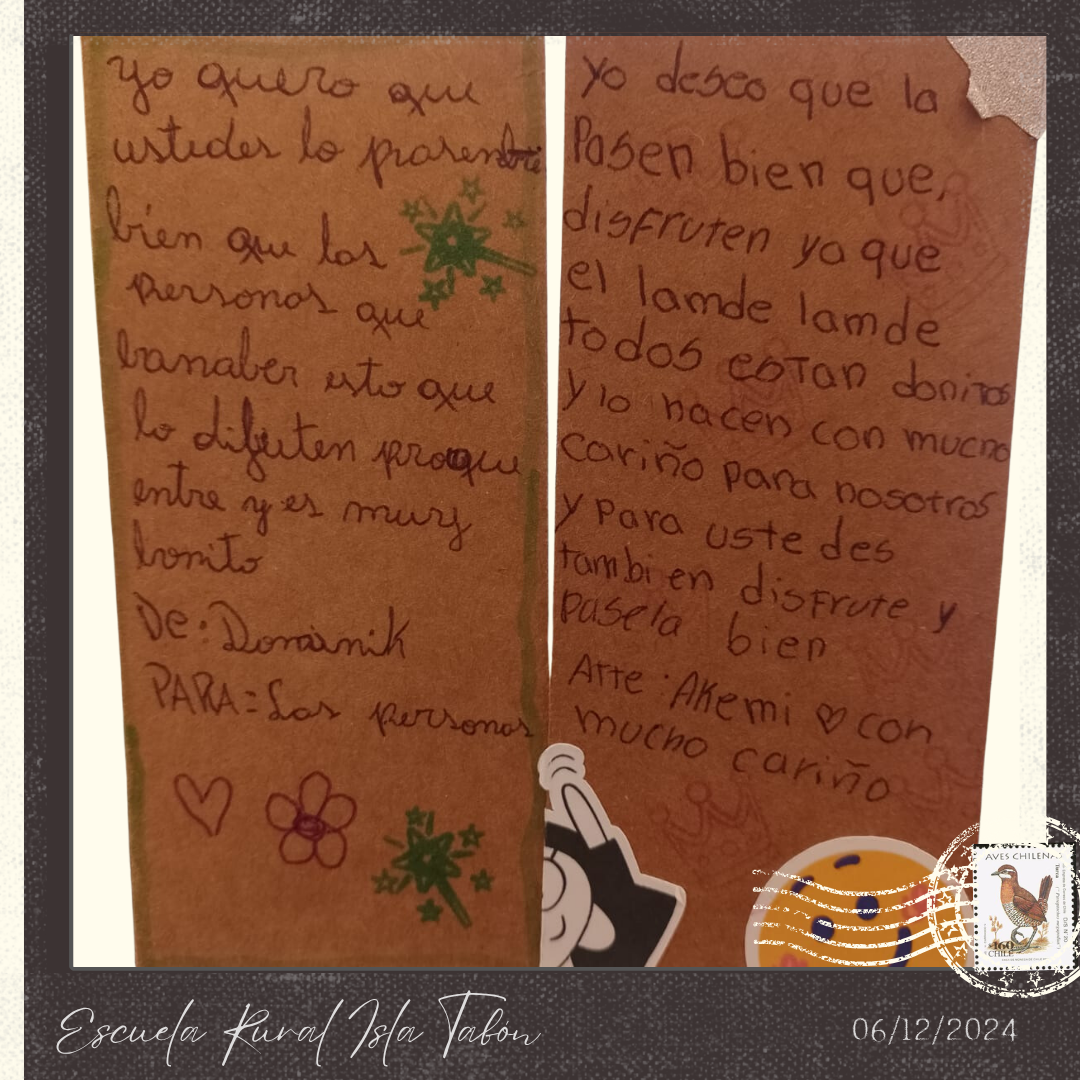 yo quero que
ustedes lo prasen
bien que las
personas que
vanaber esto que
lo difruten proque
entre y es muy
bonito
De: Dominik
PARA = Las personas
yo deseo que la
Pasen bien que,
disfruten ya que
el lamde lamde
todos estan
y lo hacen con mucho
cariño para nosotros
y para uste des
tambi en disfrute y
pasela bien
Atte : Akemi ♡ con
mucho cariño
AVES CHILENAS
460
CHILE
Escuela Rural Isla Tabón
06/12/2024